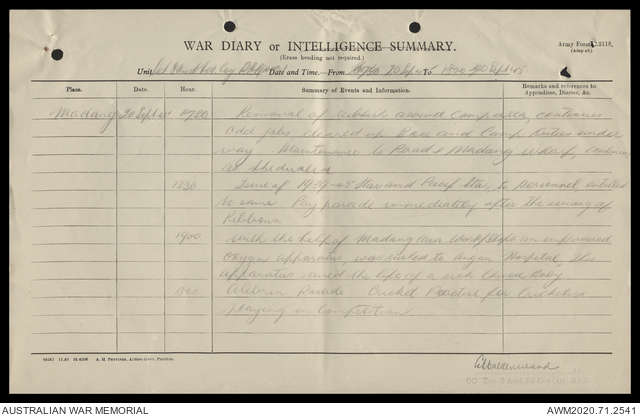 WAR DIARY or INTELLIGENCE SUMMARY.
(Erase heading not required.)
Army Form C.2118.
(Adapted)
Unit Date and Time—From 20 Sept 45 to 1800 20 Sept 45
Place. Date. Hour. Summary of Events and Information. Remarks and references to Appendices, Diaries, &c.
Madang 20 Sept 45 0720 Removal of rubbish around camp area, continues
odd jobs cleared up. Base and Camp duties under
way. Maintenance to Roads Madang wharf, continues
as scheduled
1230 Issue of 1939-45 Star and Pacific Star to personnel entitled
to same. Pay parade immediately after the issuing of
Ribbons
1900 With the help of Madang Area Workshops an improvised
oxygen apparatus, was rushed to Hospital, this
apparatus saved the life of a sick Chinese Baby
Atebrin Parade Cricket Practice for Cricketers
playing in Competition
A. H. Pettifer, Acting Govt. Printer.
AUSTRALIAN WAR MEMORIAL
AWM2020.71.2541